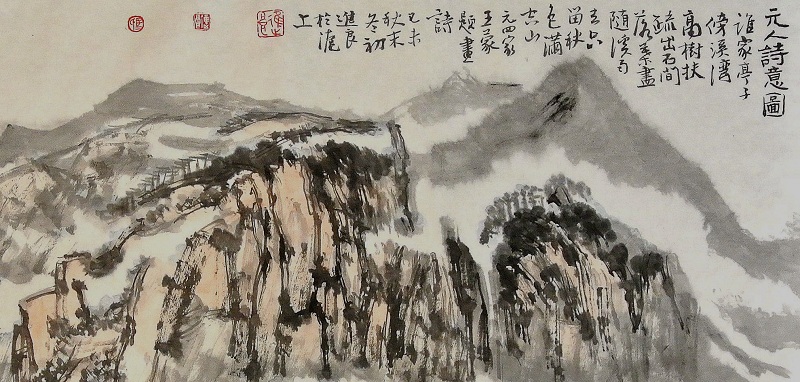 元人詩意圖
誰家亭子
傍溪灣
高樹扶
疏出石間
落葉盡
随溪雨
去只
留秋
色滿
空山
元四家
王蒙
題畫
詩
己未
秋末
冬初
進良
於滬
上